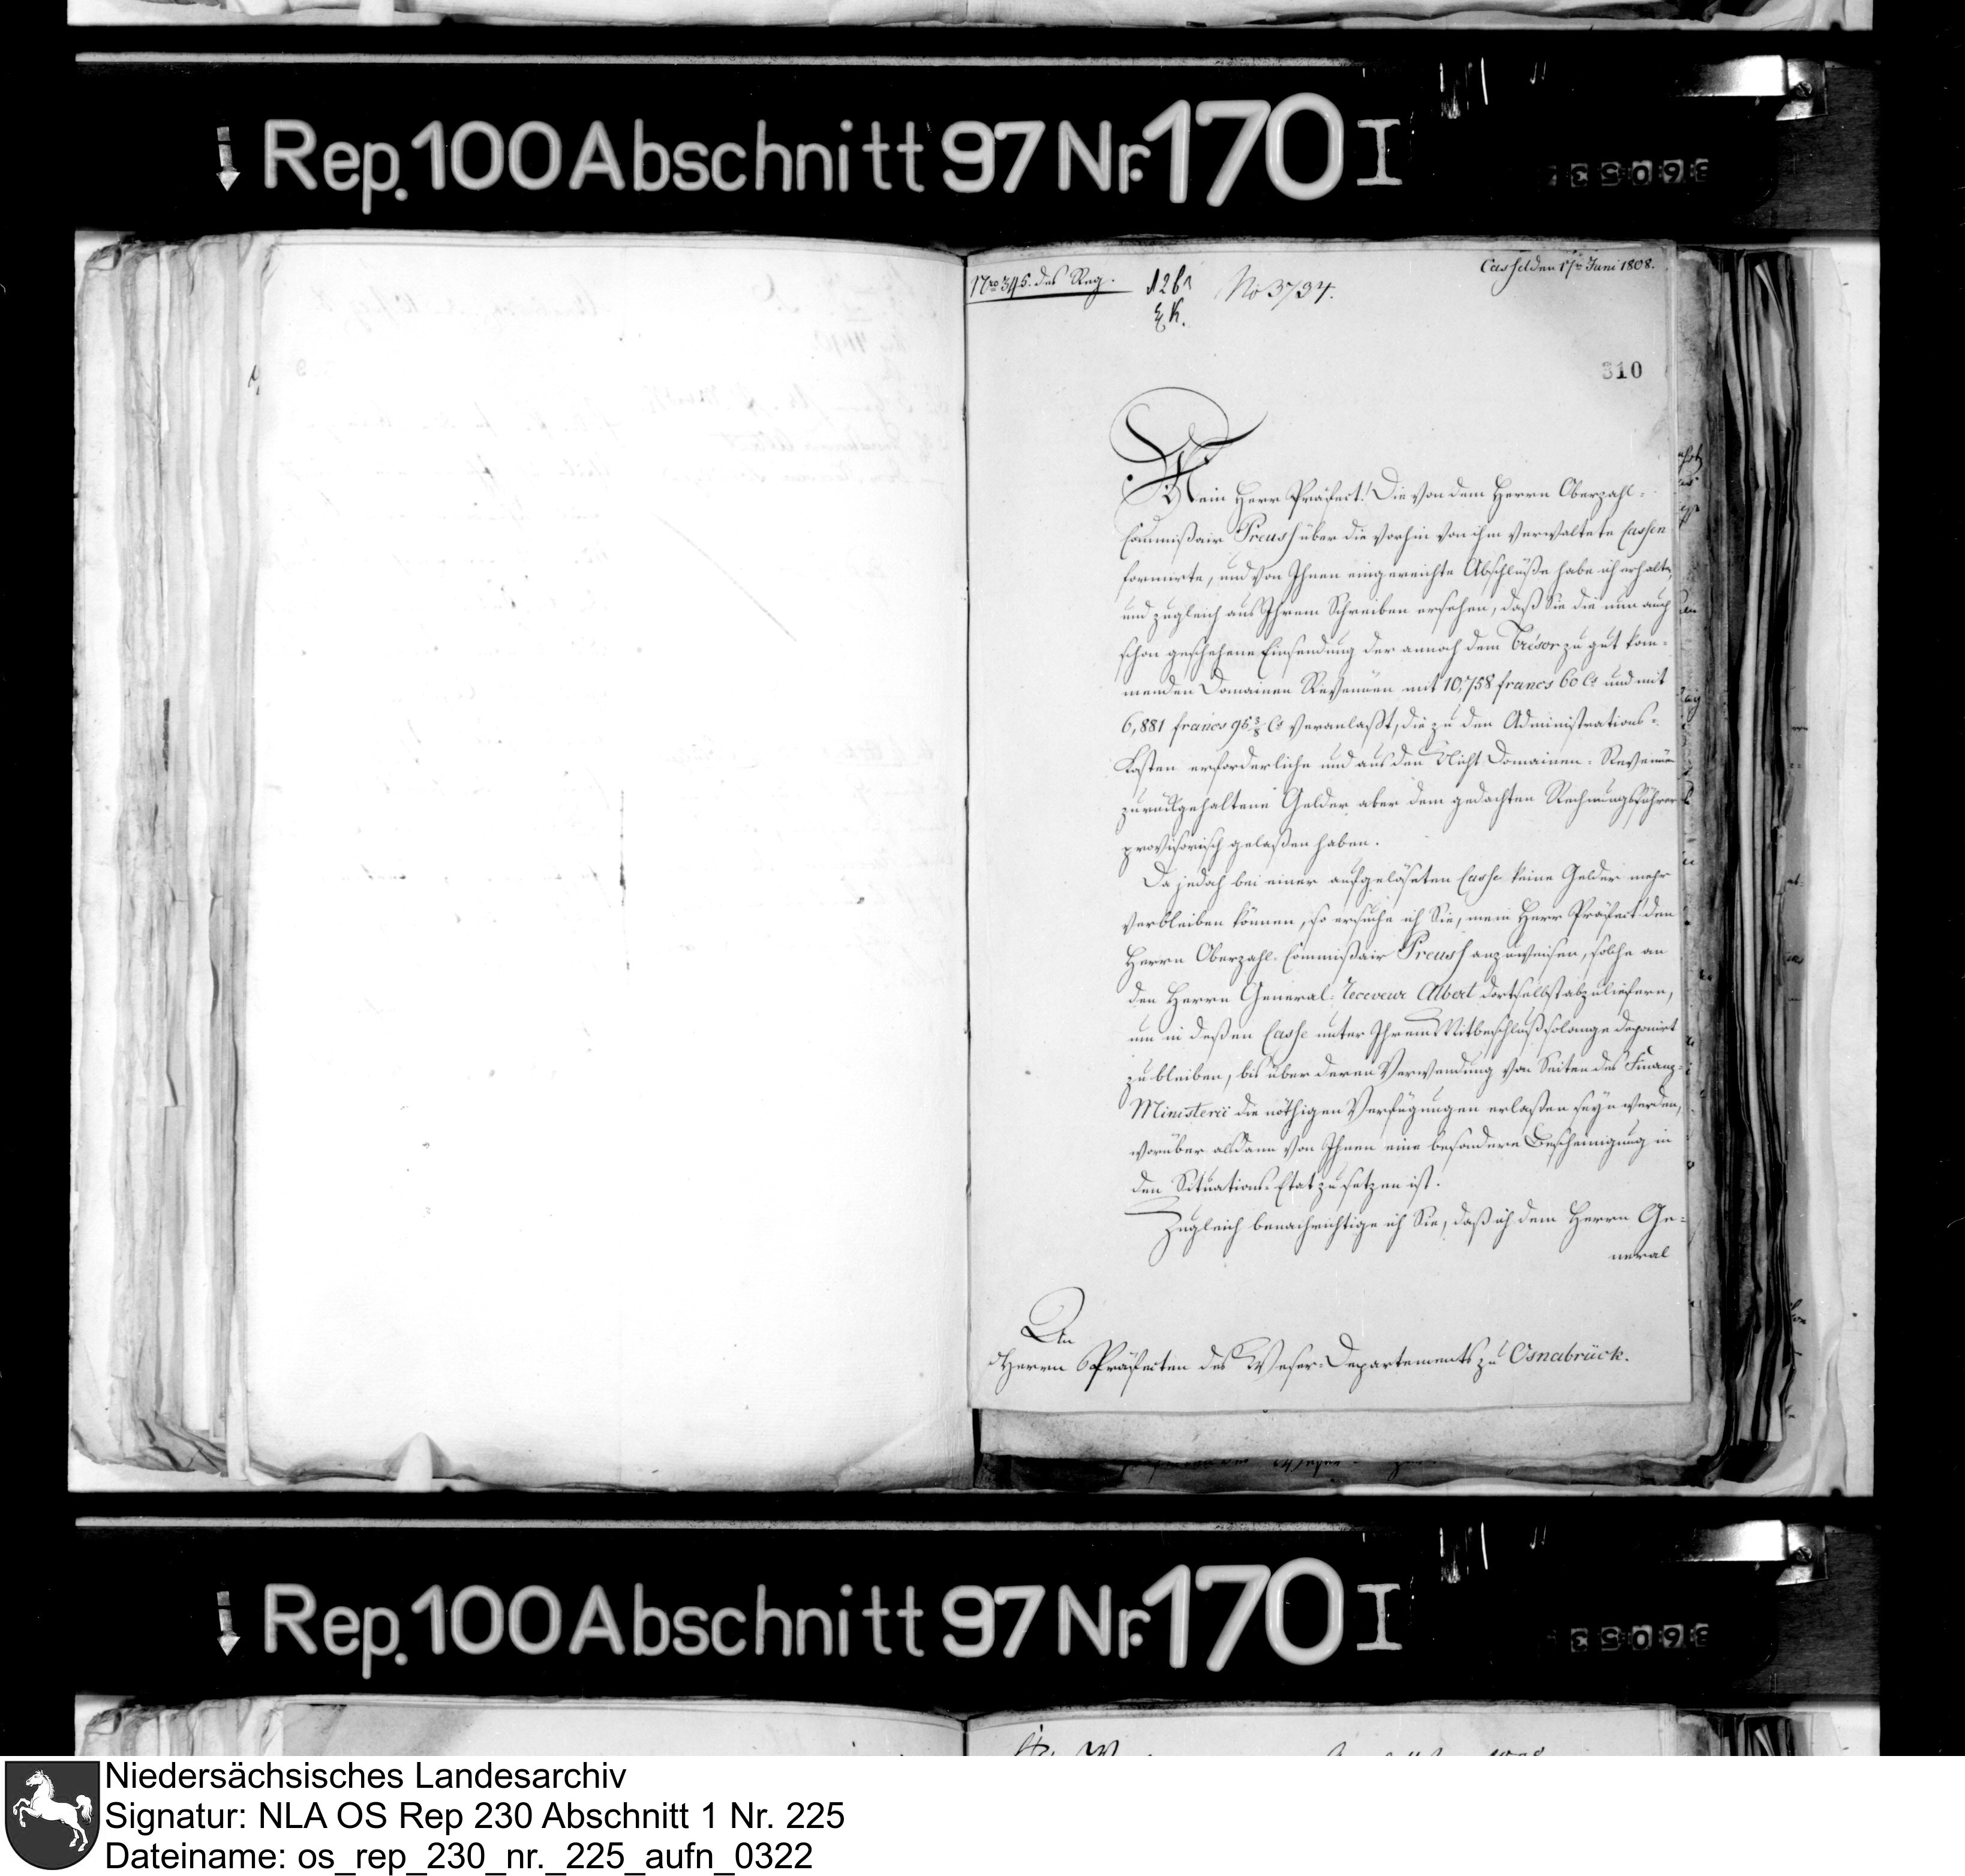 Rep. 100 Abschnitt 97 Nr. 170 I
Nro 345. des Reg.
Cassel den 17ten Juni 1808.
No 3734.
310
Mein Herr Präfect! Die von dem Herrn Oberzahl-
Commißair Preuss über die vorhin von ihm verwaltete Cassen
formirte, und von Ihnen eingereichte Abschlüße habe ich erhalten,
und zugleich aus Ihrem Schreiben ersehen, daß Sie die nun auch
schon geschehene Einsendung der annoch dem Trésor zu gut kom-
menden Domainen Revenüen mit 10,758 francs 60 Cs und mit
6,881 francs 96 3/8 Cs veranlaßt, die zu den Administrations-
Kosten erforderliche und aus den Nicht Domainen-Revenüen
zurückgehaltene Gelder aber dem gedachten Rechnungsführer
provisorisch gelaßen haben.
Da jedoch bei einer aufgelöseten Casse keine Gelder mehr
verbleiben können, so ersuche ich Sie, mein Herr Präfect! den
Herrn Oberzahl-Commißair Preuss anzuweisen, solche an
den Herrn General-Receveur Albert dortselbst abzuliefern,
um in deßen Casse unter Ihrem Mitbeschluß solange deponirt
zu bleiben, bis über deren Verwendung von Seiten des Finanz-
Ministerii die nöthigen Verfügungen erlaßen seyn werden,
worüber alsdann von Ihnen eine besondere Bescheinigung in
den Situations-Etat zu setzen ist.
Zugleich benachrichtige ich Sie, daß ich dem Herrn Ge-
neral
An
Herrn Präfecten des Weser-Departements zu Osnabrück.
Rep. 100 Abschnitt 97 Nr. 170 I
Niedersächsisches Landesarchiv
Signatur: NLA OS Rep 230 Abschnitt 1 Nr. 225
Dateiname: os_rep_230_nr._225_aufn_0322